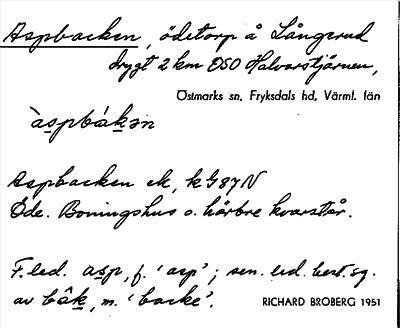 Aspbacken, ödetorp å Långerud
drygt 2 km OSO Halvarstjärnen,
Östmarks sn, Fryksdals hd, Värml. län
`aspbákən
Aspbacken ek, kG87N
Öde. Boningshus o. härbre kvarstår.
F.led. asp, f. 'asp'; sen. led. best. sg.
av båk, m. 'backe'.
RICHARD BROBERG 1951